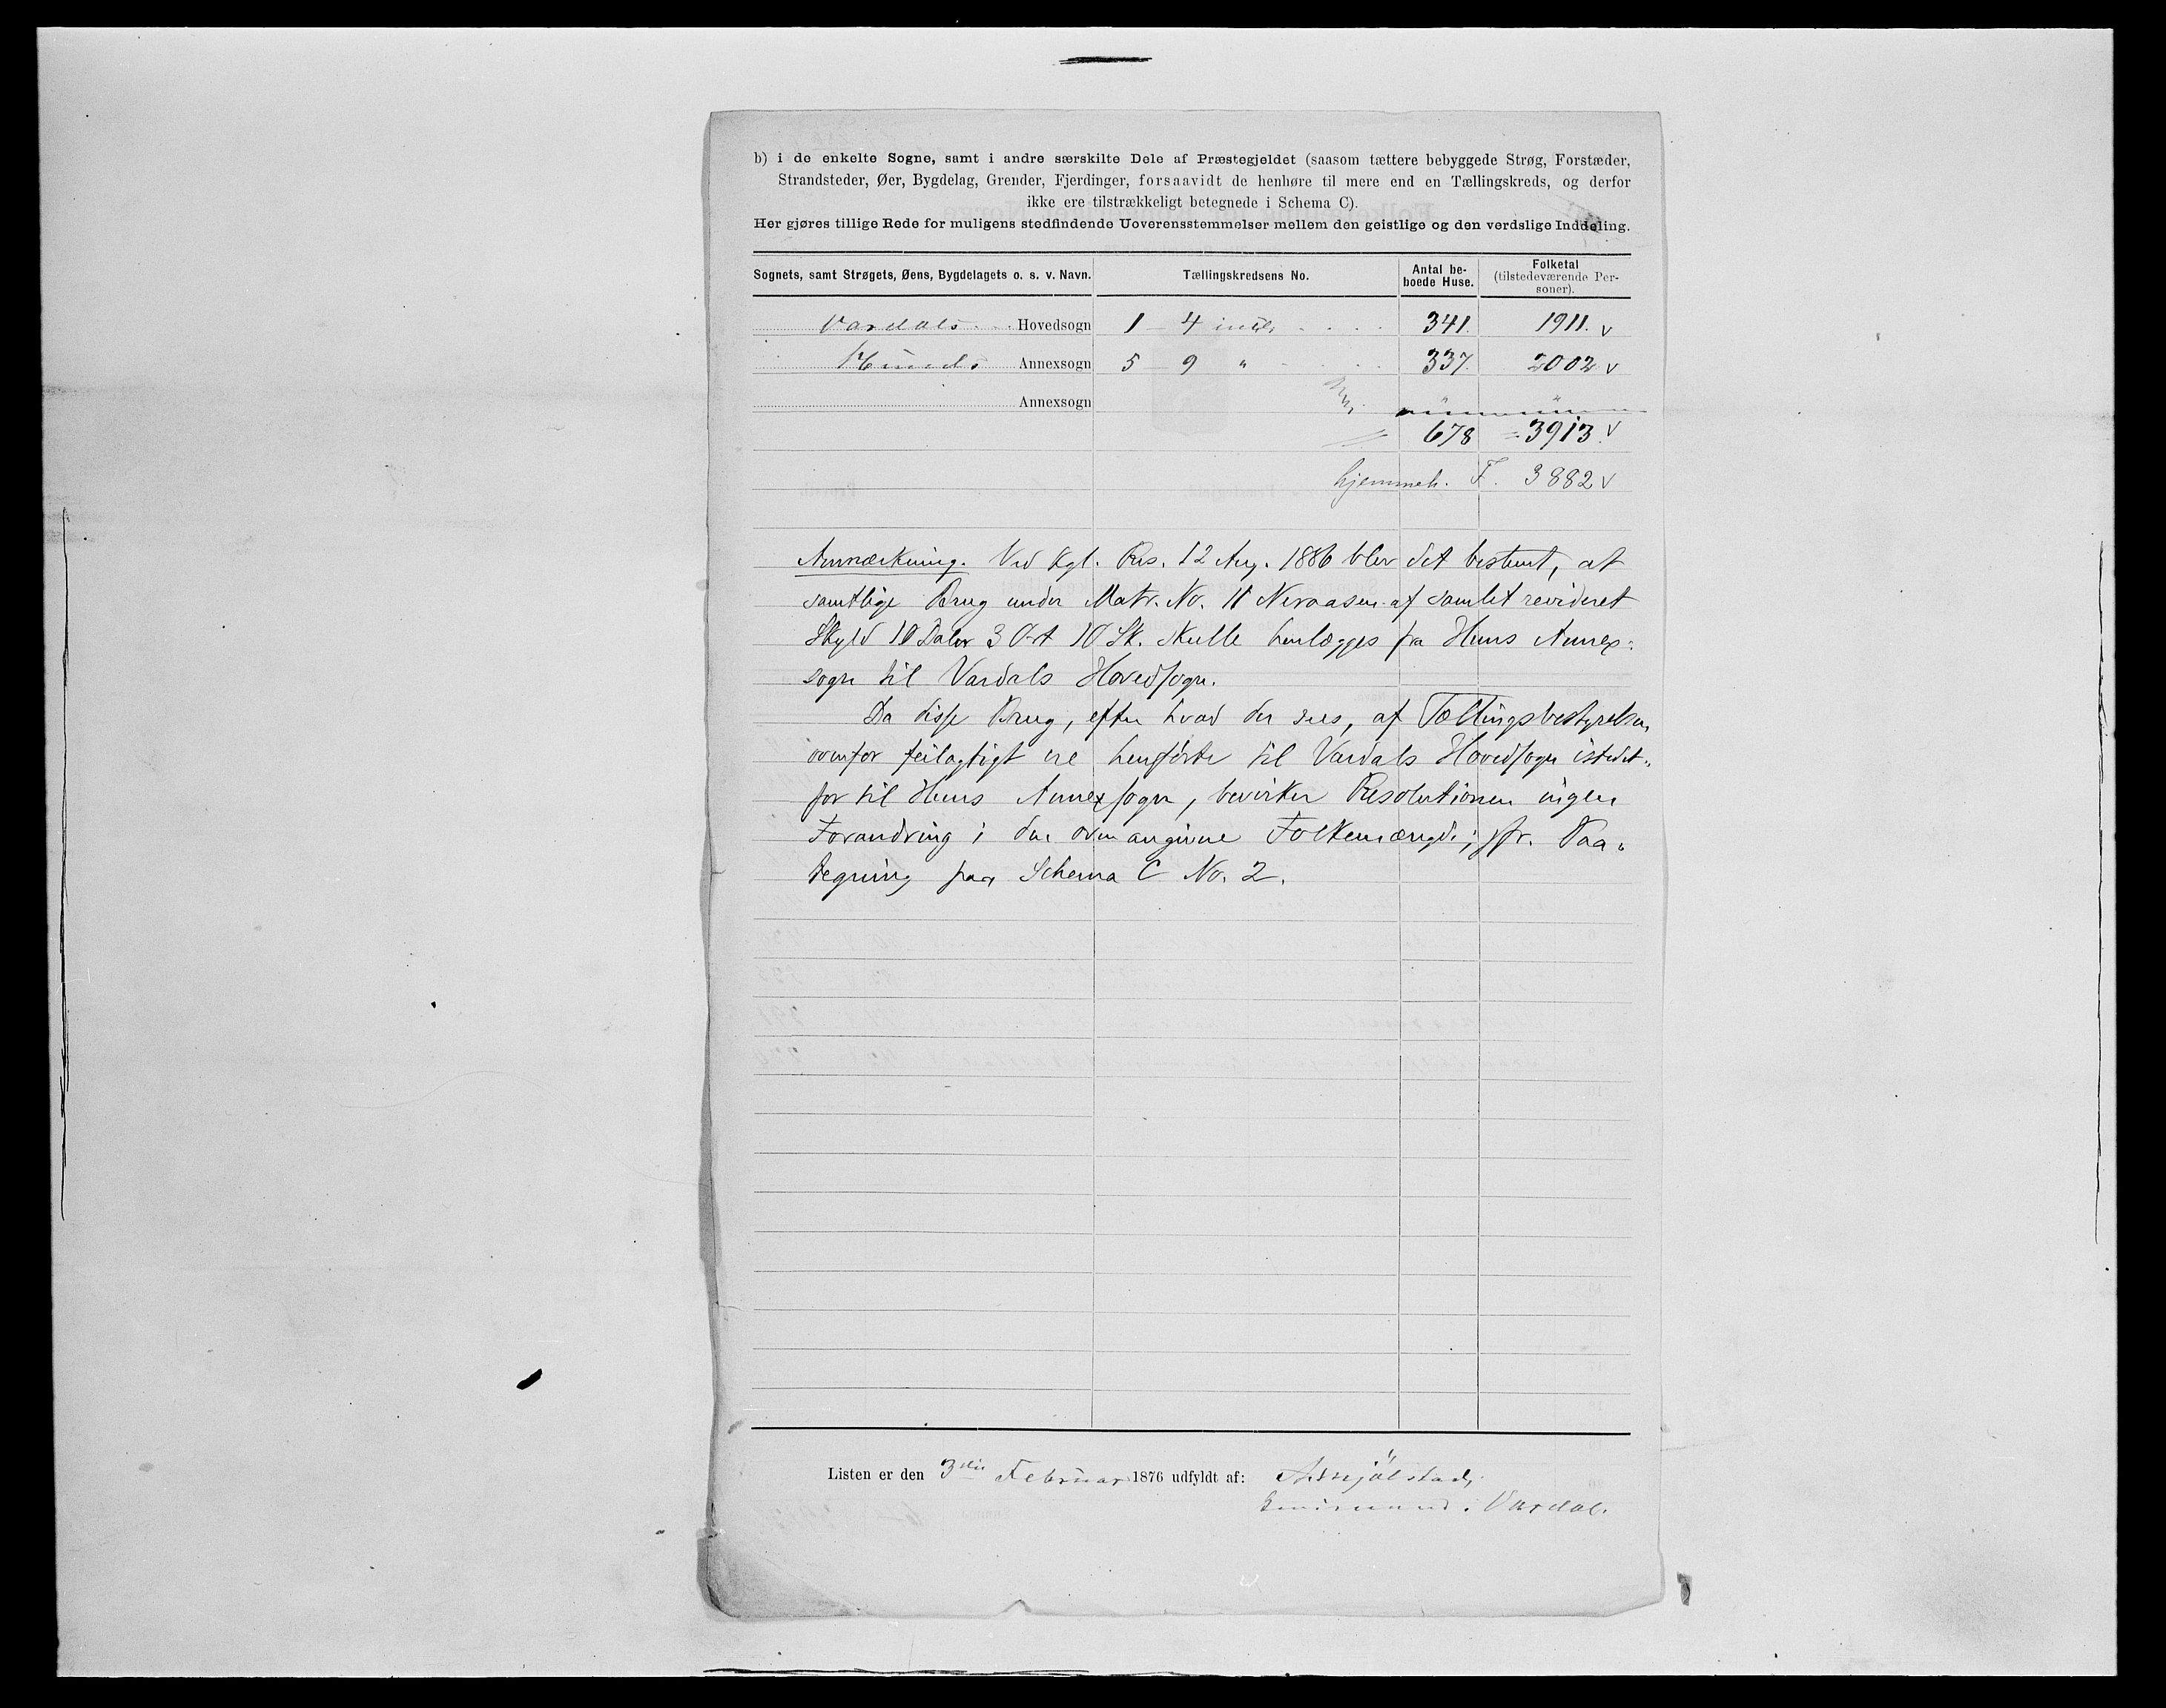 b) i de enkelte Sogne, samt i andre særskilte Dele af Præstegjeldet (saasom tættere bebyggede Strøg, Forstæder,
Strandsteder, Øer, Bygdelag, Grender, Fjerdinger, forsaavidt de henhøre til mere end en Tællingskreds, og derfor
ikke ere tilstrækkeligt betegnede i Schema C).
Her gjøres tillige Rede for muligens stedfindende Uoverensstemmelser mellem den geistlige og den verdslige Inddeling.
Sognets, samt Strøgets, Øens, Bygdelagets o. s. v. Navn. Tællingskredsens No. Antal beboede Huse. Folketal (tilstedeværende Personer).
Vardals Hovedsogn 1 - 4 incl. 341. 1911. v
Hunds Annexsogn 5 - 9 " 337. 2002 v
Annexsogn
678 = 3913. v
hjemmeh. F. 3882 v
Anmærkning. Ved Kgl. Res. 12 Aug. 1886 blev det bestemt, at
samtlige Brug under Matr. No. 11 Neraasen af samlet revideret
Skyld 10 Daler 3 Ort 10 Sk. skulle henlægges fra Huns Annex-
sogn til Vardals Hovedsogn.
Da disse Brug, efter hvad der sees, af Tællingsbestyrelsen
ovenfor feilagtigt ere henførte til Vardals Hovedsogn istedet-
for til Huns Annexsogn, bevirker Resolutionen ingen
Forandring i den ovenangivne Folkemængde; jfr. Paa-
tegning paa Schema C No. 2.
Listen er den 3die Februar 1876 udfyldt af:
i Vardal.